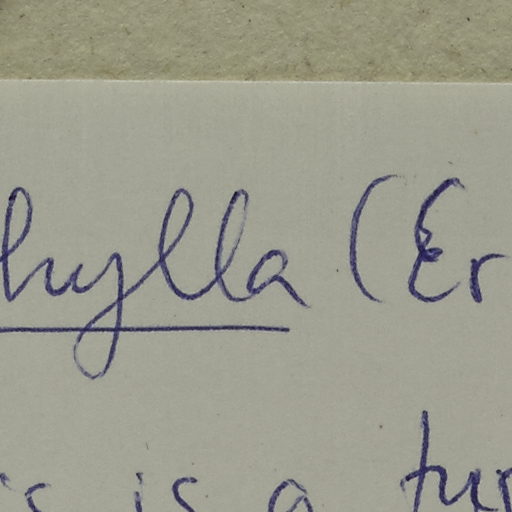 hylla (Er
is is a typ